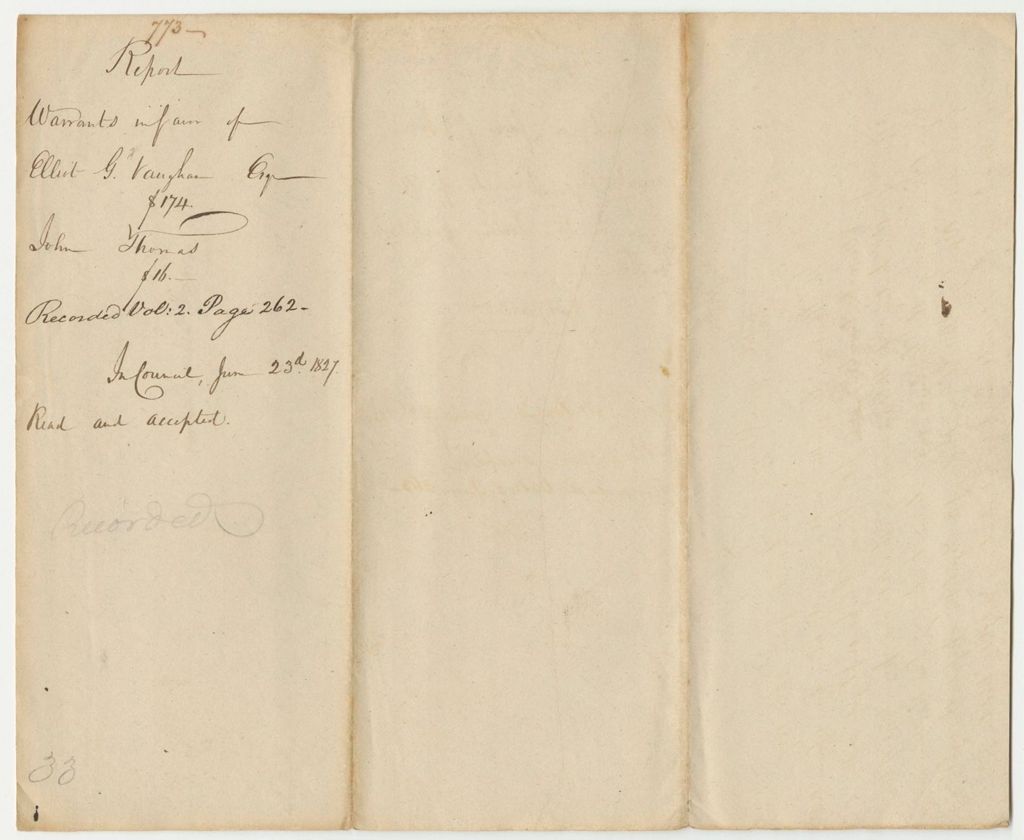 773
Report
Warrants in favor of
Elliot G. Vaughan Esqr
$174.
John Thomas
$16.
Recorded Vol: 2. Page 262-
In Council, June 23d. 1827.
Read and accepted.
Recorded
33